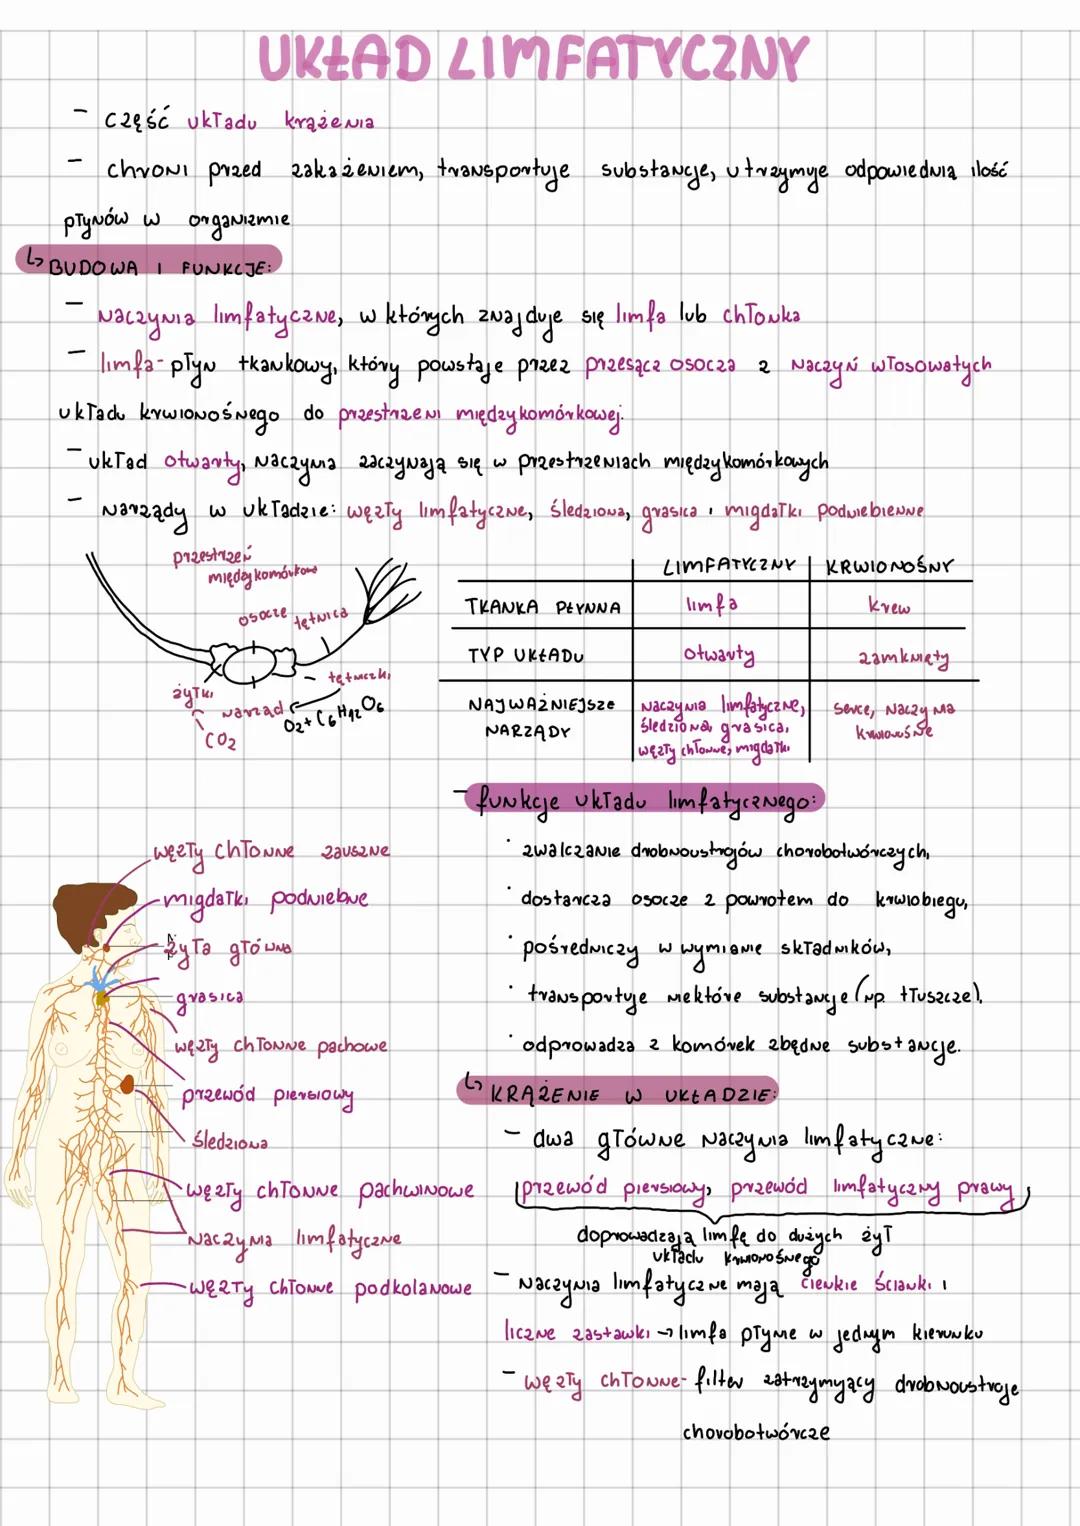 UKŁAD LIMFATYCZNY
- część układu krążenia
- chroni przed zakażeniem, transportuje substancje, utrzymuje odpowiednią ilość
płynów w organizmie
↳ BUDOWA I FUNKCJE:
- naczynia limfatyczne, w których znajduje się limfa lub chłonka
- limfa - płyn tkankowy, który powstaje przez przesącz osocza z naczyń włosowatych
układu krwionośnego do przestrzeni międzykomórkowej.
- układ otwarty, naczynia zaczynają się w przestrzeniach międzykomórkowych
- narządy w układzie: węzły limfatyczne, śledziona, grasica i migdałki podniebienne
przestrzeń
międzykomórkowa
osocze
tętnica
tętniczki
żyłki
narząd
O2 + C6H12O6
CO2
LIMFATYCZNY KRWIONOŚNY
TKANKA PŁYNNA limfa krew
TYP UKŁADU otwarty zamknięty
NAJWAŻNIEJSZE naczynia limfatyczne, serce, naczynia
NARZĄDY śledziona, grasica, krwionośne
węzły chłonne, migdałki
- funkcje układu limfatycznego:
· zwalczanie drobnoustrojów chorobotwórczych,
· dostarcza osocze z powrotem do krwiobiegu,
· pośredniczy w wymianie składników,
· transportuje niektóre substancje (np. tłuszcze),
· odprowadza z komórek zbędne substancje.
węzły chłonne zauszne
migdałki podniebne
żyła główna
grasica
węzły chłonne pachowe
przewód piersiowy
śledziona
węzły chłonne pachwinowe
naczynia limfatyczne
węzły chłonne podkolanowe
↳ KRĄŻENIE W UKŁADZIE:
- dwa główne naczynia limfatyczne:
przewód piersiowy, przewód limfatyczny prawy
doprowadzają limfę do dużych żył
układu krwionośnego
- naczynia limfatyczne mają cienkie ścianki i
liczne zastawki → limfa płynie w jednym kierunku
- węzły chłonne - filter zatrzymujący drobnoustroje
chorobotwórcze